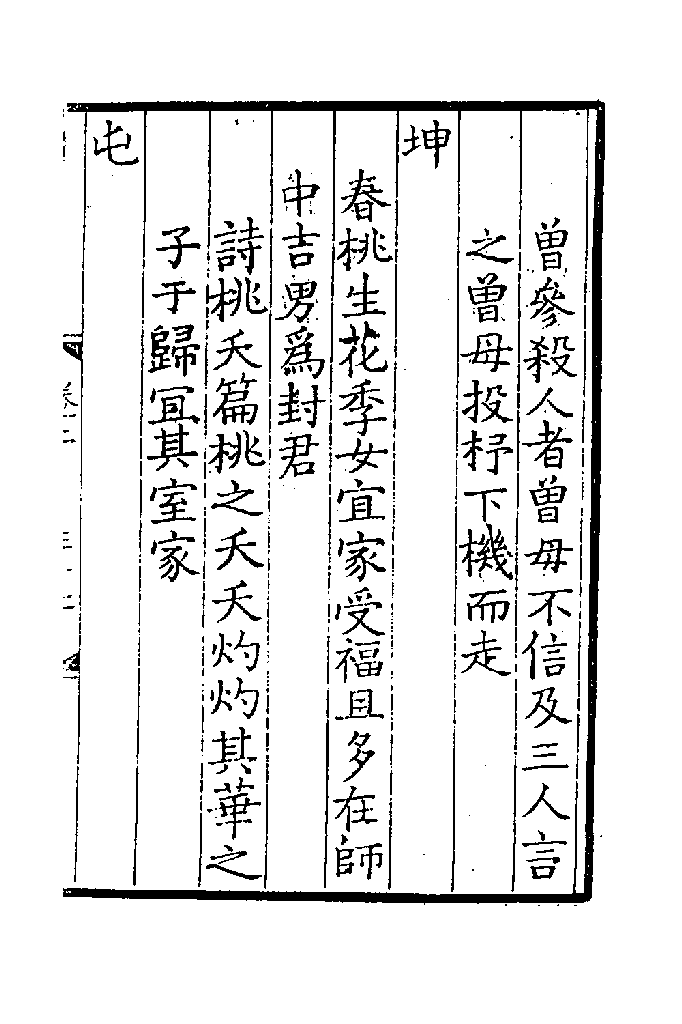 曽參殺人者曽母不信及三人言
之曽母投杼下機而走
坤
春桃生花季女宜家受福且多在師
中吉男爲封君
詩桃夭篇桃之夭夭灼灼其華之
子于歸宜其室家
屯